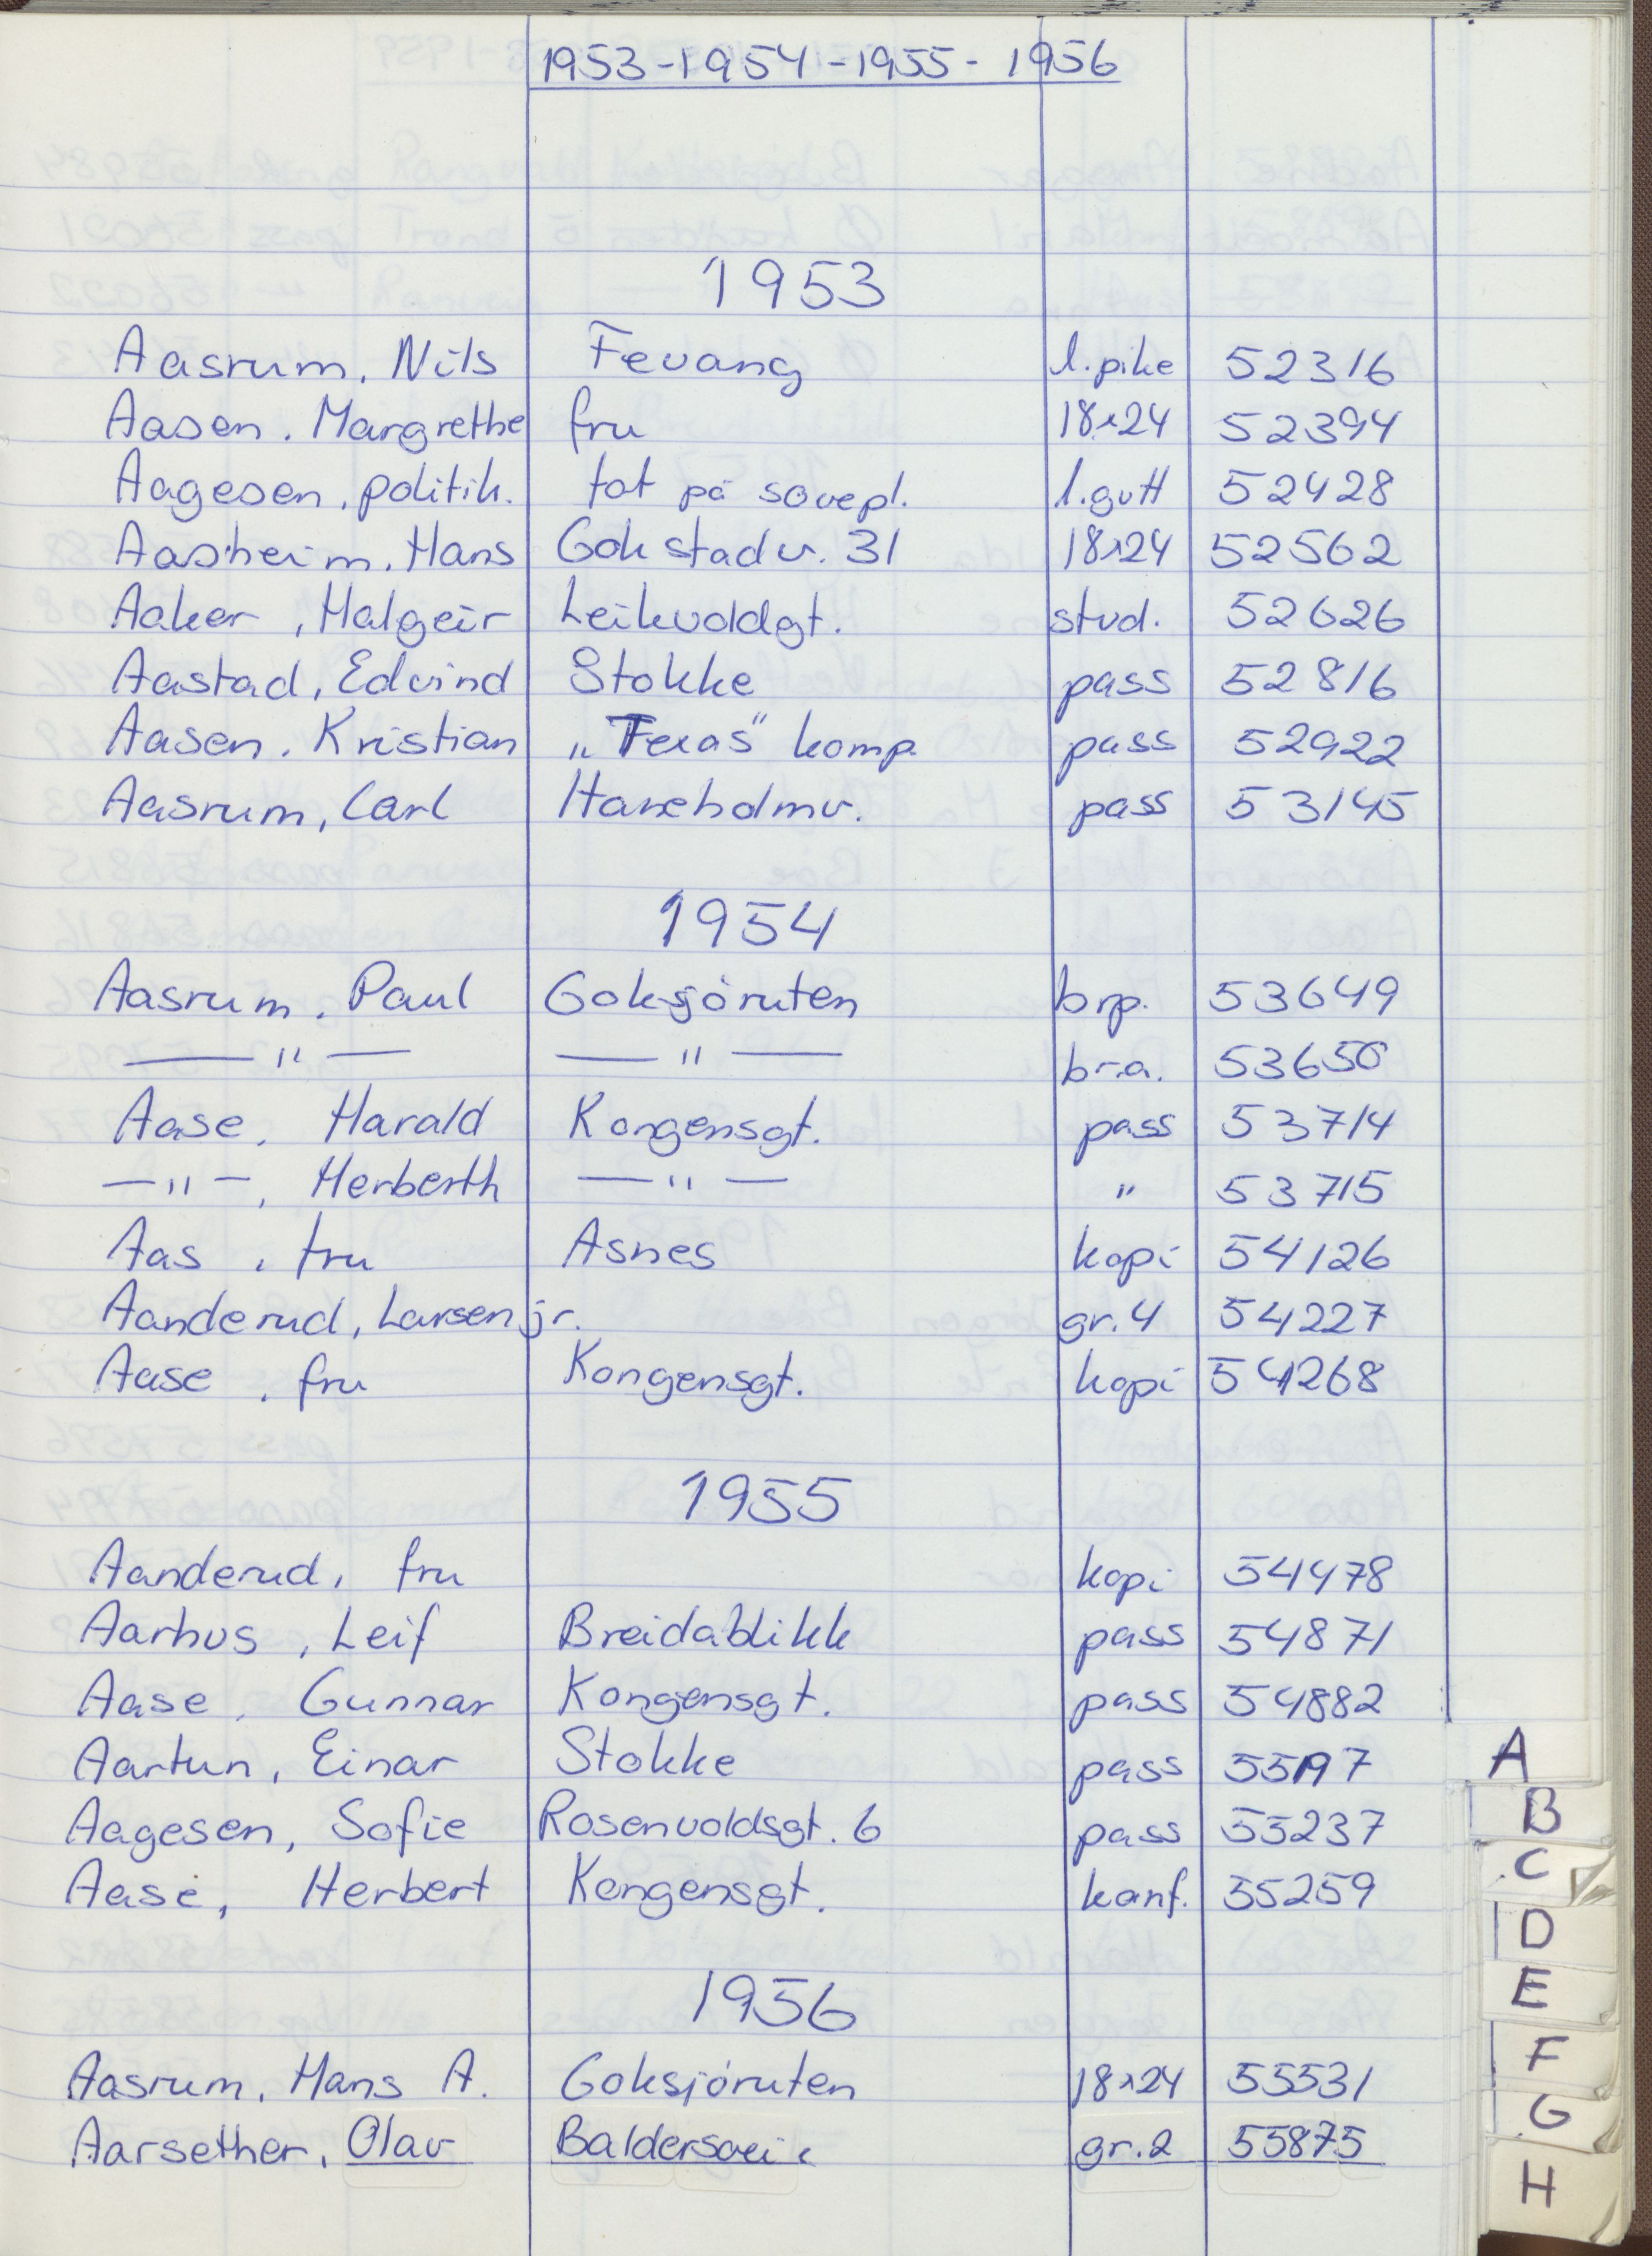 1953-1954-1955-1956
1953
Aasrum, Nils Fevang l.pike 52316
Aasen, Margrethe fru 18x24 52394
Aagesen, politik. tat på sovepl. l.gutt 52428
Aasheim, Hans Gokstadv. 31 18x24 52562
Aaker, Halgeir Leikvoldgt. stud. 52626
Aastad, Edvind Stokke pass 52816
Aasen, Kristian „Texas" komp. pass 52922
Aasrum, Carl Haneholmv. pass 53145
1954
Aasrum, Paul Goksjöruten brp. 53649
— " — — " — br.a. 53650
Aase, Harald Kongensgt. pass 53714
— " —, Herberth — " — " 53715
Aas, fru Asnes kopi 54126
Aanderud, Larsen jr. gr.4 54227
Aase, fru Kongensgt. kopi 54268
1955
Aanderud, fru kopi 54478
Aarhus, Leif Breidablikk pass 54871
Aase, Gunnar Kongensgt. pass 54882
Aartun, Einar Stokke pass 55197
Aagesen, Sofie Rosenvoldsgt. 6 pass 55237
Aase, Herbert Kongensgt. konf. 55259
1956
Aasrum, Hans A. Goksjöruten 18x24 55531
Aarsether, Olav Baldersvei gr.2 55875
A
B
C
D
E
F
G
H